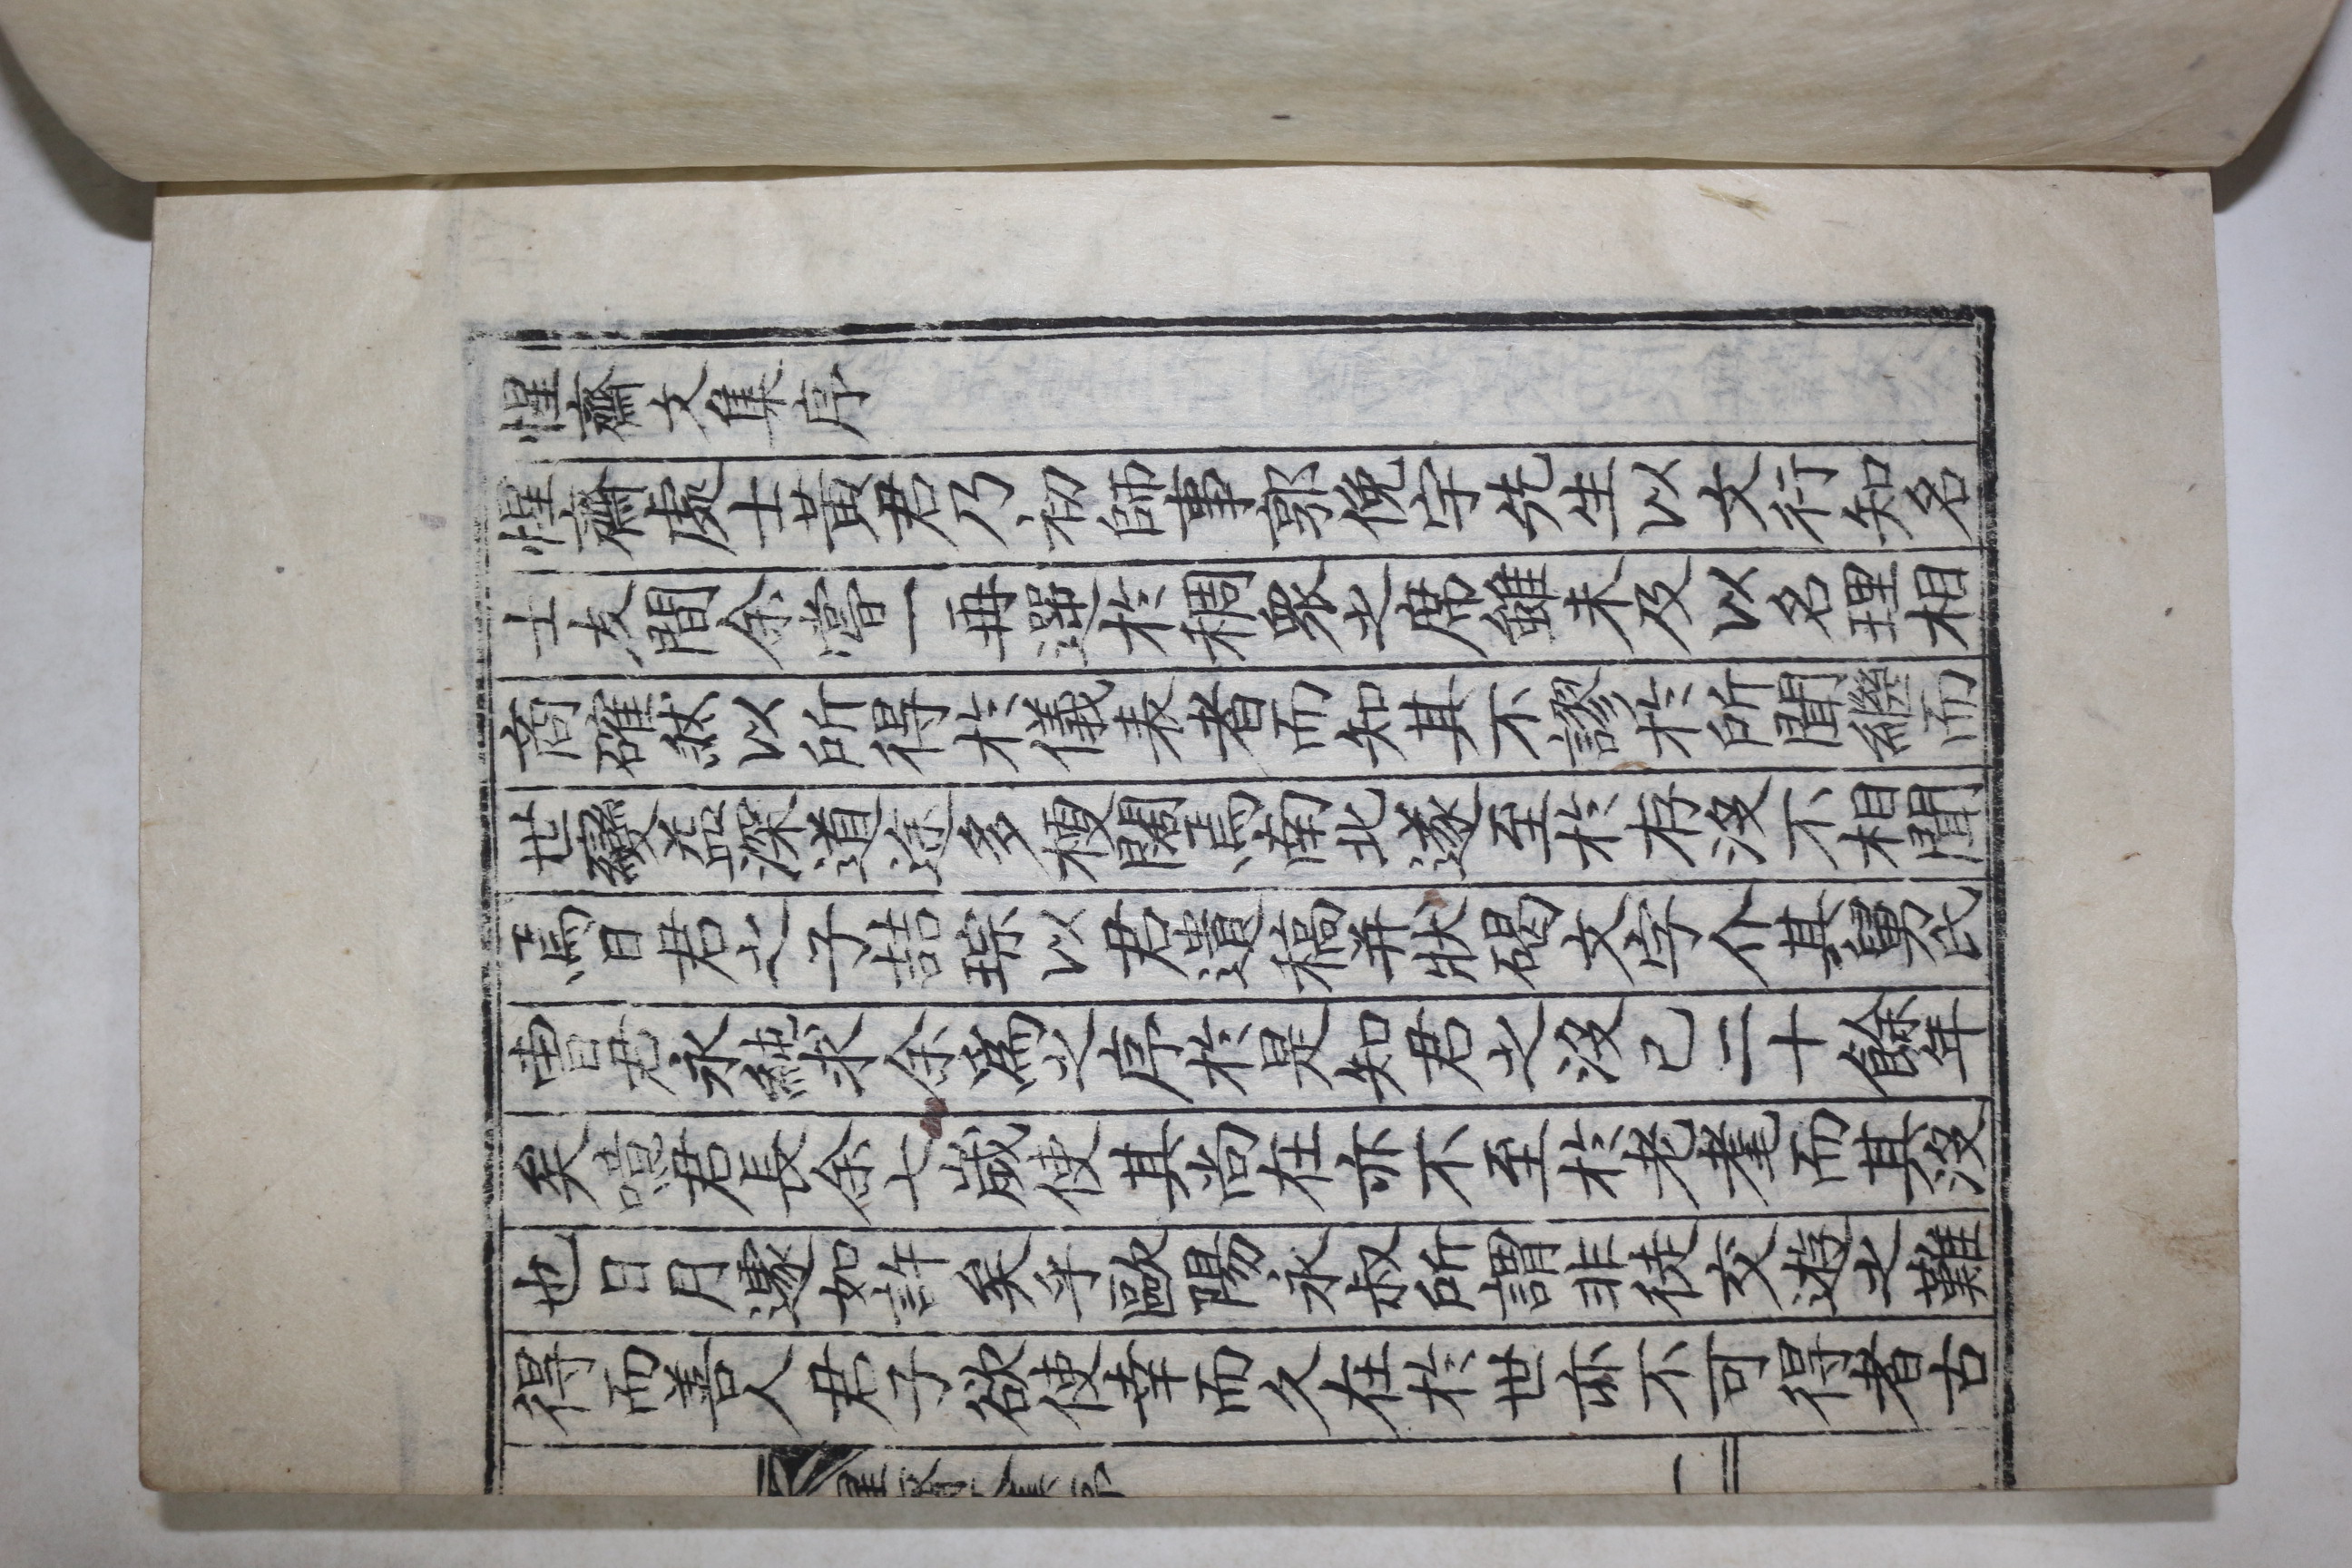 惺齋文集序
惺齋處士黃君乃初師事郭俛宇先生以文行知名
士友間余嘗一再遌於稠衆之席雖未及以名理相
商確然以所得於儀表者而知其不謬於所聞繼而
世變益深道途多梗闊焉南北遂至於存沒不相聞
焉日君之子喆琮以君遺稿并狀碣文字介其舅氏
曺君永純求余爲之序於是知君之沒已二十餘年
矣噫君長余七歲使其尚在亦不至於老耄而其沒
也日月遽如許矣乎歐陽永叔所謂非徒交遊之難
得而善人君子欲使幸而久在於世亦不可得者古
一